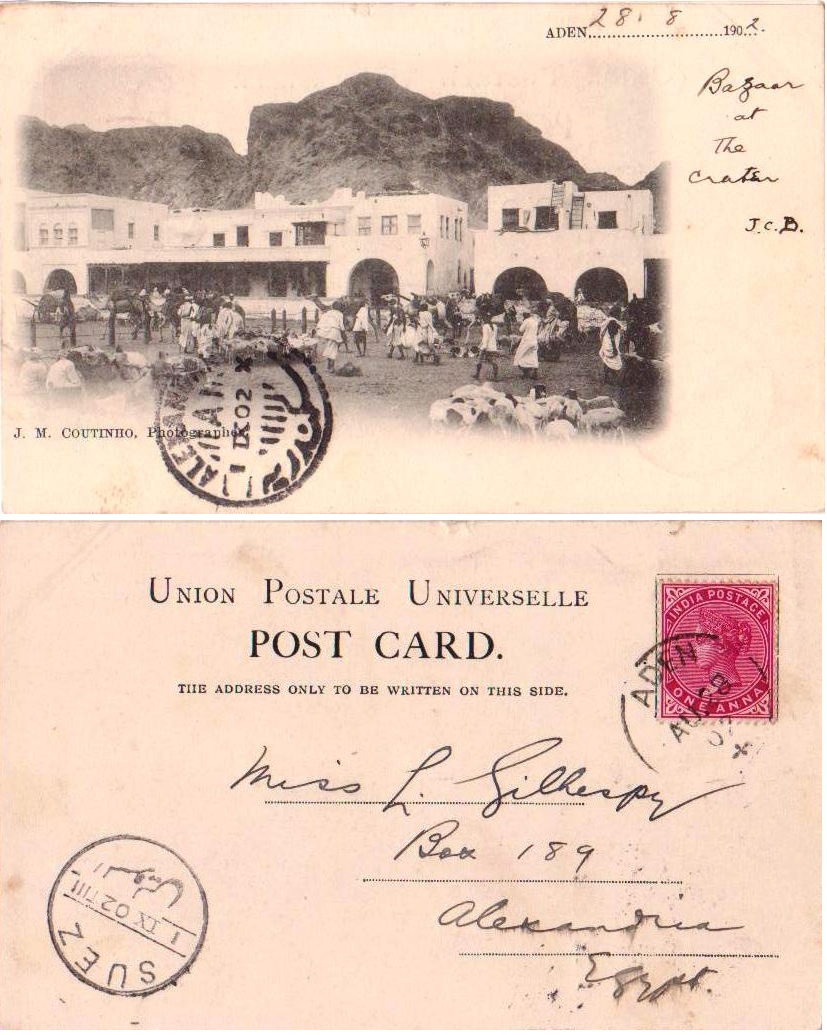 ADEN 28. 8 1902.
Bazaar
at
The
Crater
J.C.B.
J. M. COUTINHO, Photographer
1 IX 02
UNION POSTALE UNIVERSELLE
POST CARD.
THE ADDRESS ONLY TO BE WRITTEN ON THIS SIDE.
INDIA POSTAGE
ONE ANNA
ADEN
AU 28
02
Miss L. Gillespy
Box 189
Alexandria
Egypt.
السويس
1 IX 02
SUEZ